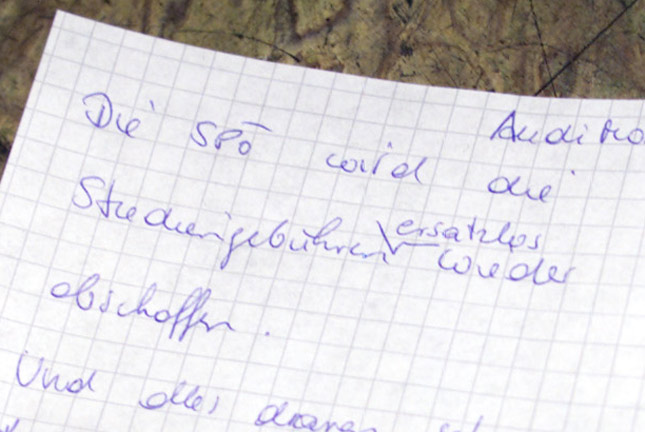 Audimo
Die SPÖ wird die
Studiengebühren ersatzlos wieder
abschaffen.
Und alles daran